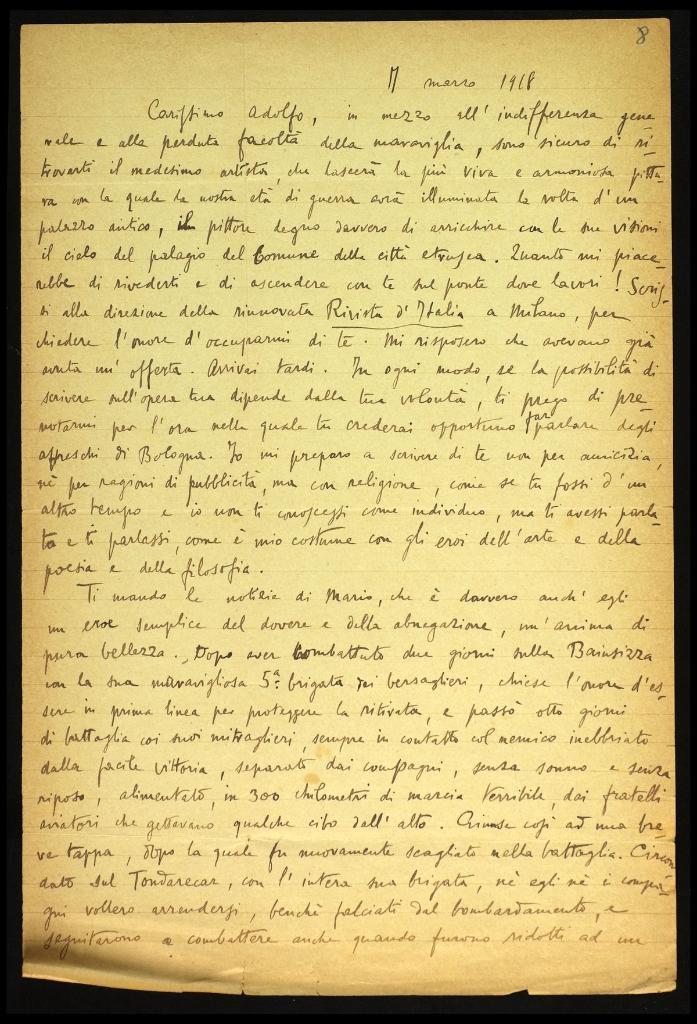 8
17 marzo 1918
Carissimo Adolfo, in mezzo all' indifferenza gene-
rale e alla perduta facoltà della maraviglia, sono sicuro di ri-
trovarti il medesimo artista, che lascerà la più viva e armoniosa pittu-
ra con la quale la nostra età di guerra avrà illuminata la volta d'un
palazzo antico, il pittore degno davvero di arricchire con le sue visioni
il cielo del palagio del Comune della città etrusca. Quanto mi piace-
rebbe di rivederti e di ascendere con te sul ponte dove lavori! Scris-
si alla direzione della rinnovata Rivista d'Italia a Milano, per
chiedere l'onore d'occuparmi di te. Mi risposero che avevano già
avuta un' offerta. Arrivai tardi. In ogni modo, se la possibilità di
scrivere sull'opera tua dipende dalla tua volontà, ti prego di pre-
notarmi per l'ora nella quale tu crederai opportuno far parlare degli
affreschi di Bologna. Io mi preparo a scrivere di te non per amicizia,
nè per ragioni di pubblicità, ma con religione, come se tu fossi d'un
altro tempo e io non ti conoscessi come individuo, ma ti avessi parla-
to e ti parlassi, come è mio costume con gli eroi dell'arte e della
poesia e della filosofia.
Ti mando le notizie di Mario, che è davvero anch' egli
un eroe semplice del dovere e della abnegazione, un'anima di
pura bellezza. Dopo aver combattuto due giorni sulla Bainsizza
con la sua maravigliosa 5ª brigata dei bersaglieri, chiese l'onore d'es-
sere in prima linea per proteggere la ritirata, e passò otto giorni
di battaglia coi suoi mitraglieri, sempre in contatto col nemico inebbriato
dalla facile vittoria, separato dai compagni, senza sonno e senza
riposo, alimentato, in 300 chilometri di marcia terribile, dai fratelli
aviatori che gettavano qualche cibo dall'alto. Giunse così ad una bre-
ve tappa, dopo la quale fu nuovamente scagliato nella battaglia. Circon-
dato sul Tondarecar, con l'intera sua brigata, nè egli nè i compa-
gni vollero arrendersi, benchè falciati dal bombardamento, e
seguitarono a combattere anche quando furono ridotti ad un